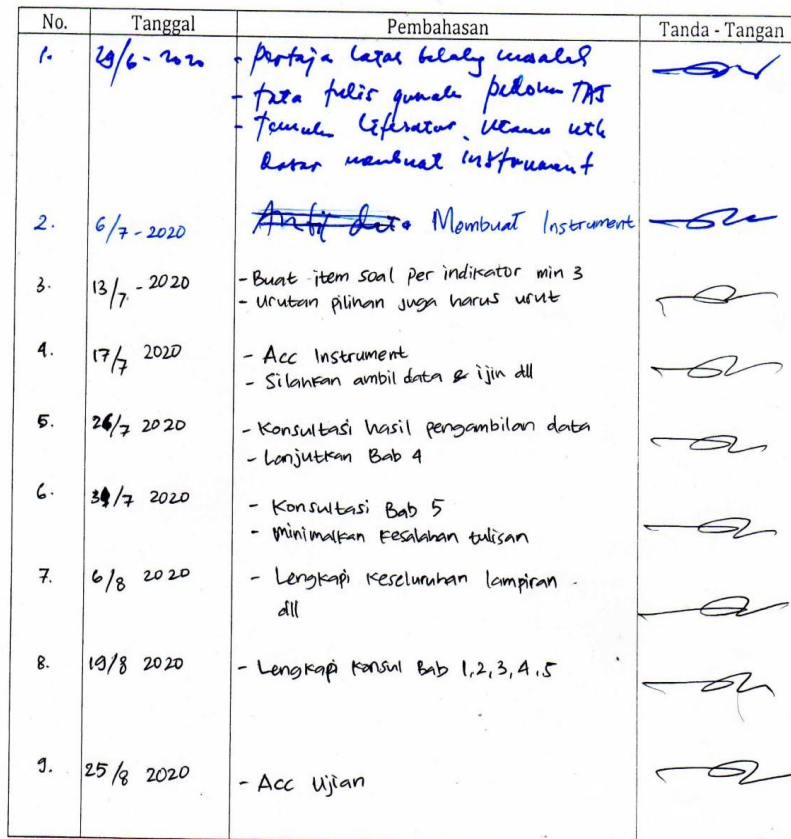 No. Tanggal Pembahasan Tanda - Tangan
1. 29/6 - 2020 - pertaja latar belakg masalah
- tata tulis gunak pedoman TAS
- Temukn literatur utama utk
dasar membuat instrument
2. 6/7 - 2020 Ambil data Membuat Instrument
3. 13/7 - 2020 - Buat item soal per indikator min 3
- Urutan pilihan juga harus urut
4. 17/7 2020 - Acc Instrument
- Silahkan ambil data & ijin dll
5. 26/7 2020 - Konsultasi hasil pengambilan data
- Lanjutkan Bab 4
6. 31/7 2020 - Konsultasi Bab 5
- minimalkan kesalahan tulisan
7. 6/8 2020 - Lengkapi keseluruhan lampiran
dll
8. 19/8 2020 - Lengkapi konsul Bab 1,2,3,4,5
9. 25/8 2020 - Acc Ujian